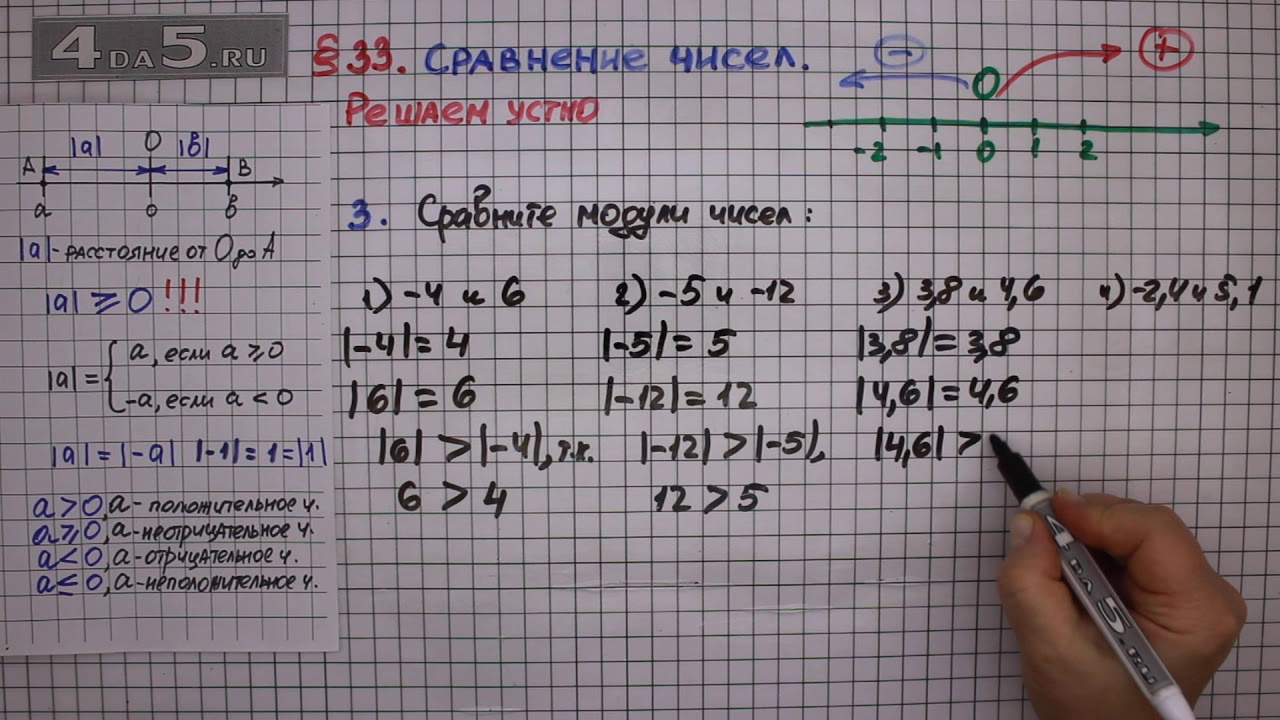 4DA5.RU
§ 33. Сравнение чисел.
Решаем устно
- 0 +
-2 -1 0 1 2
|a| 0 |в|
A B
a 0 в
|a| - расстояние от 0 до A
|a| ≥ 0 !!!
|a| = { a, если a ≥ 0
-a, если a < 0
|a| = |-a| |-1| = 1 = |1|
a > 0, a - положительное ч.
a ≥ 0, a - неотрицательное ч.
a < 0, a - отрицательное ч.
a ≤ 0, a - неположительное ч.
3. Сравните модули чисел:
1) -4 и 6 2) -5 и -12 3) 3,8 и 4,6 4) -2,4 и 5,1
|-4| = 4 |-5| = 5 |3,8| = 3,8
|6| = 6 |-12| = 12 |4,6| = 4,6
|6| > |-4|, т.к. |-12| > |-5|, |4,6| >
6 > 4 12 > 5
4DA5.RU